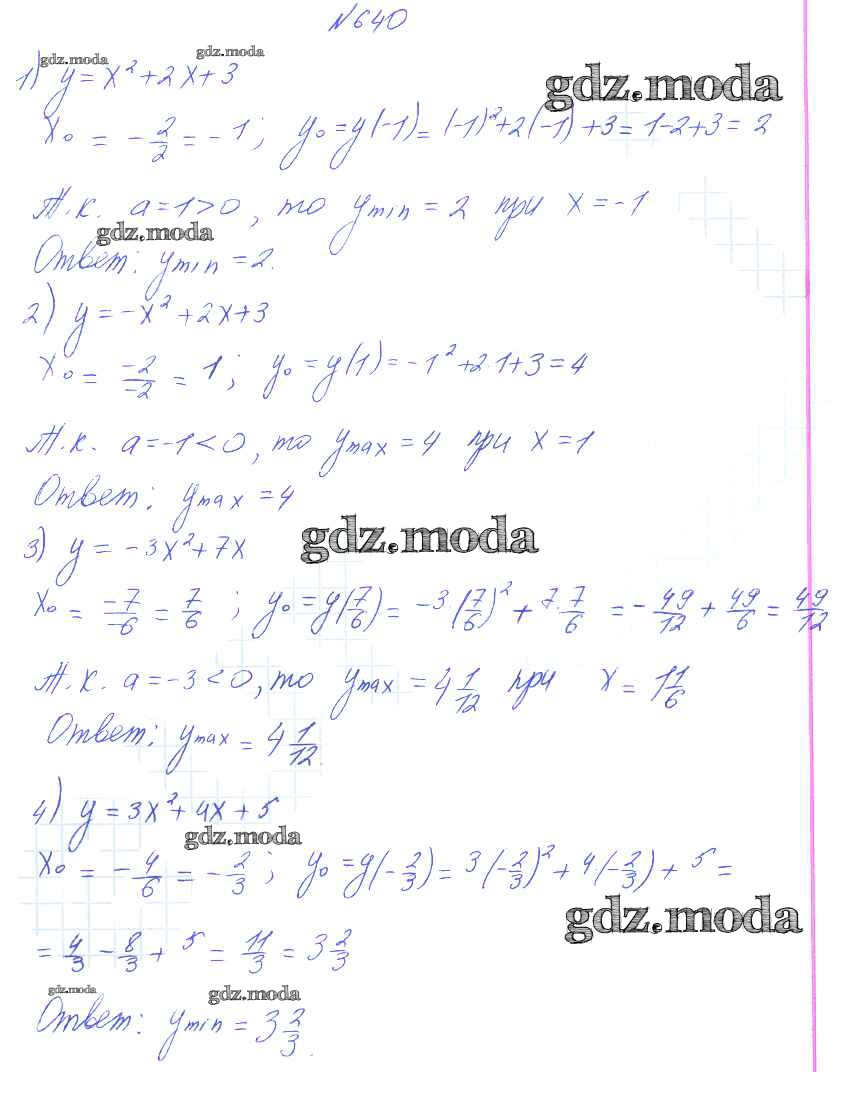 №640
gdz.moda gdz.moda
1) y = x² + 2x + 3
gdz.moda
x₀ = -2/2 = -1; y₀ = y(-1) = (-1)² + 2(-1) + 3 = 1-2+3 = 2
Т.к. a=1>0, то y min = 2 при x = -1
gdz.moda
Ответ: y min = 2.
2) y = -x² + 2x + 3
x₀ = -2/-2 = 1; y₀ = y(1) = -1² + 2·1 + 3 = 4
Т.к. a = -1 < 0, то y max = 4 при x = 1
Ответ: y max = 4
gdz.moda
3) y = -3x² + 7x
x₀ = -7/-6 = 7/6; y₀ = y(7/6) = -3(7/6)² + 7·7/6 = -49/12 + 49/6 = 49/12
Т.к. a = -3 < 0, то y max = 4 1/12 при x = 1 1/6
Ответ: y max = 4 1/12.
4) y = 3x² + 4x + 5
gdz.moda
x₀ = -4/6 = -2/3; y₀ = y(-2/3) = 3(-2/3)² + 4(-2/3) + 5 =
gdz.moda
= 4/3 - 8/3 + 5 = 11/3 = 3 2/3
gdz.moda gdz.moda
Ответ: y min = 3 2/3.